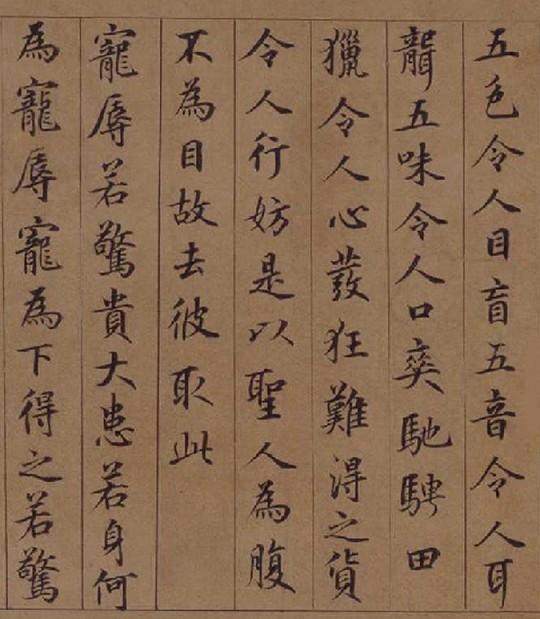 五色令人目盲五音令人耳
聾五味令人口爽馳騁田
獵令人心發狂難得之貨
令人行妨是以聖人為腹
不為目故去彼取此
寵辱若驚貴大患若身何
為寵辱寵為下得之若驚